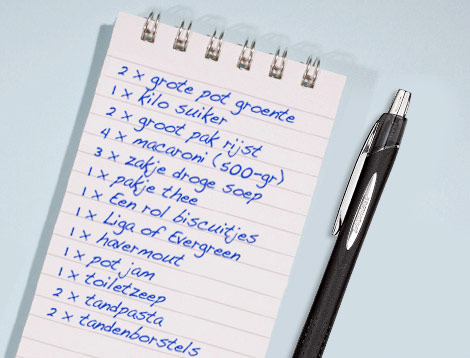 2 x grote pot groente
1 x kilo suiker
2 x groot pak rijst
4 x macaroni (500-gr)
3 x zakje droge soep
1 x pakje thee
1 x Een rol biscuitjes
1 x Liga of Evergreen
1 x havermout
1 x pot jam
1 x toiletzeep
2 x tandpasta
2 x tandenborstels